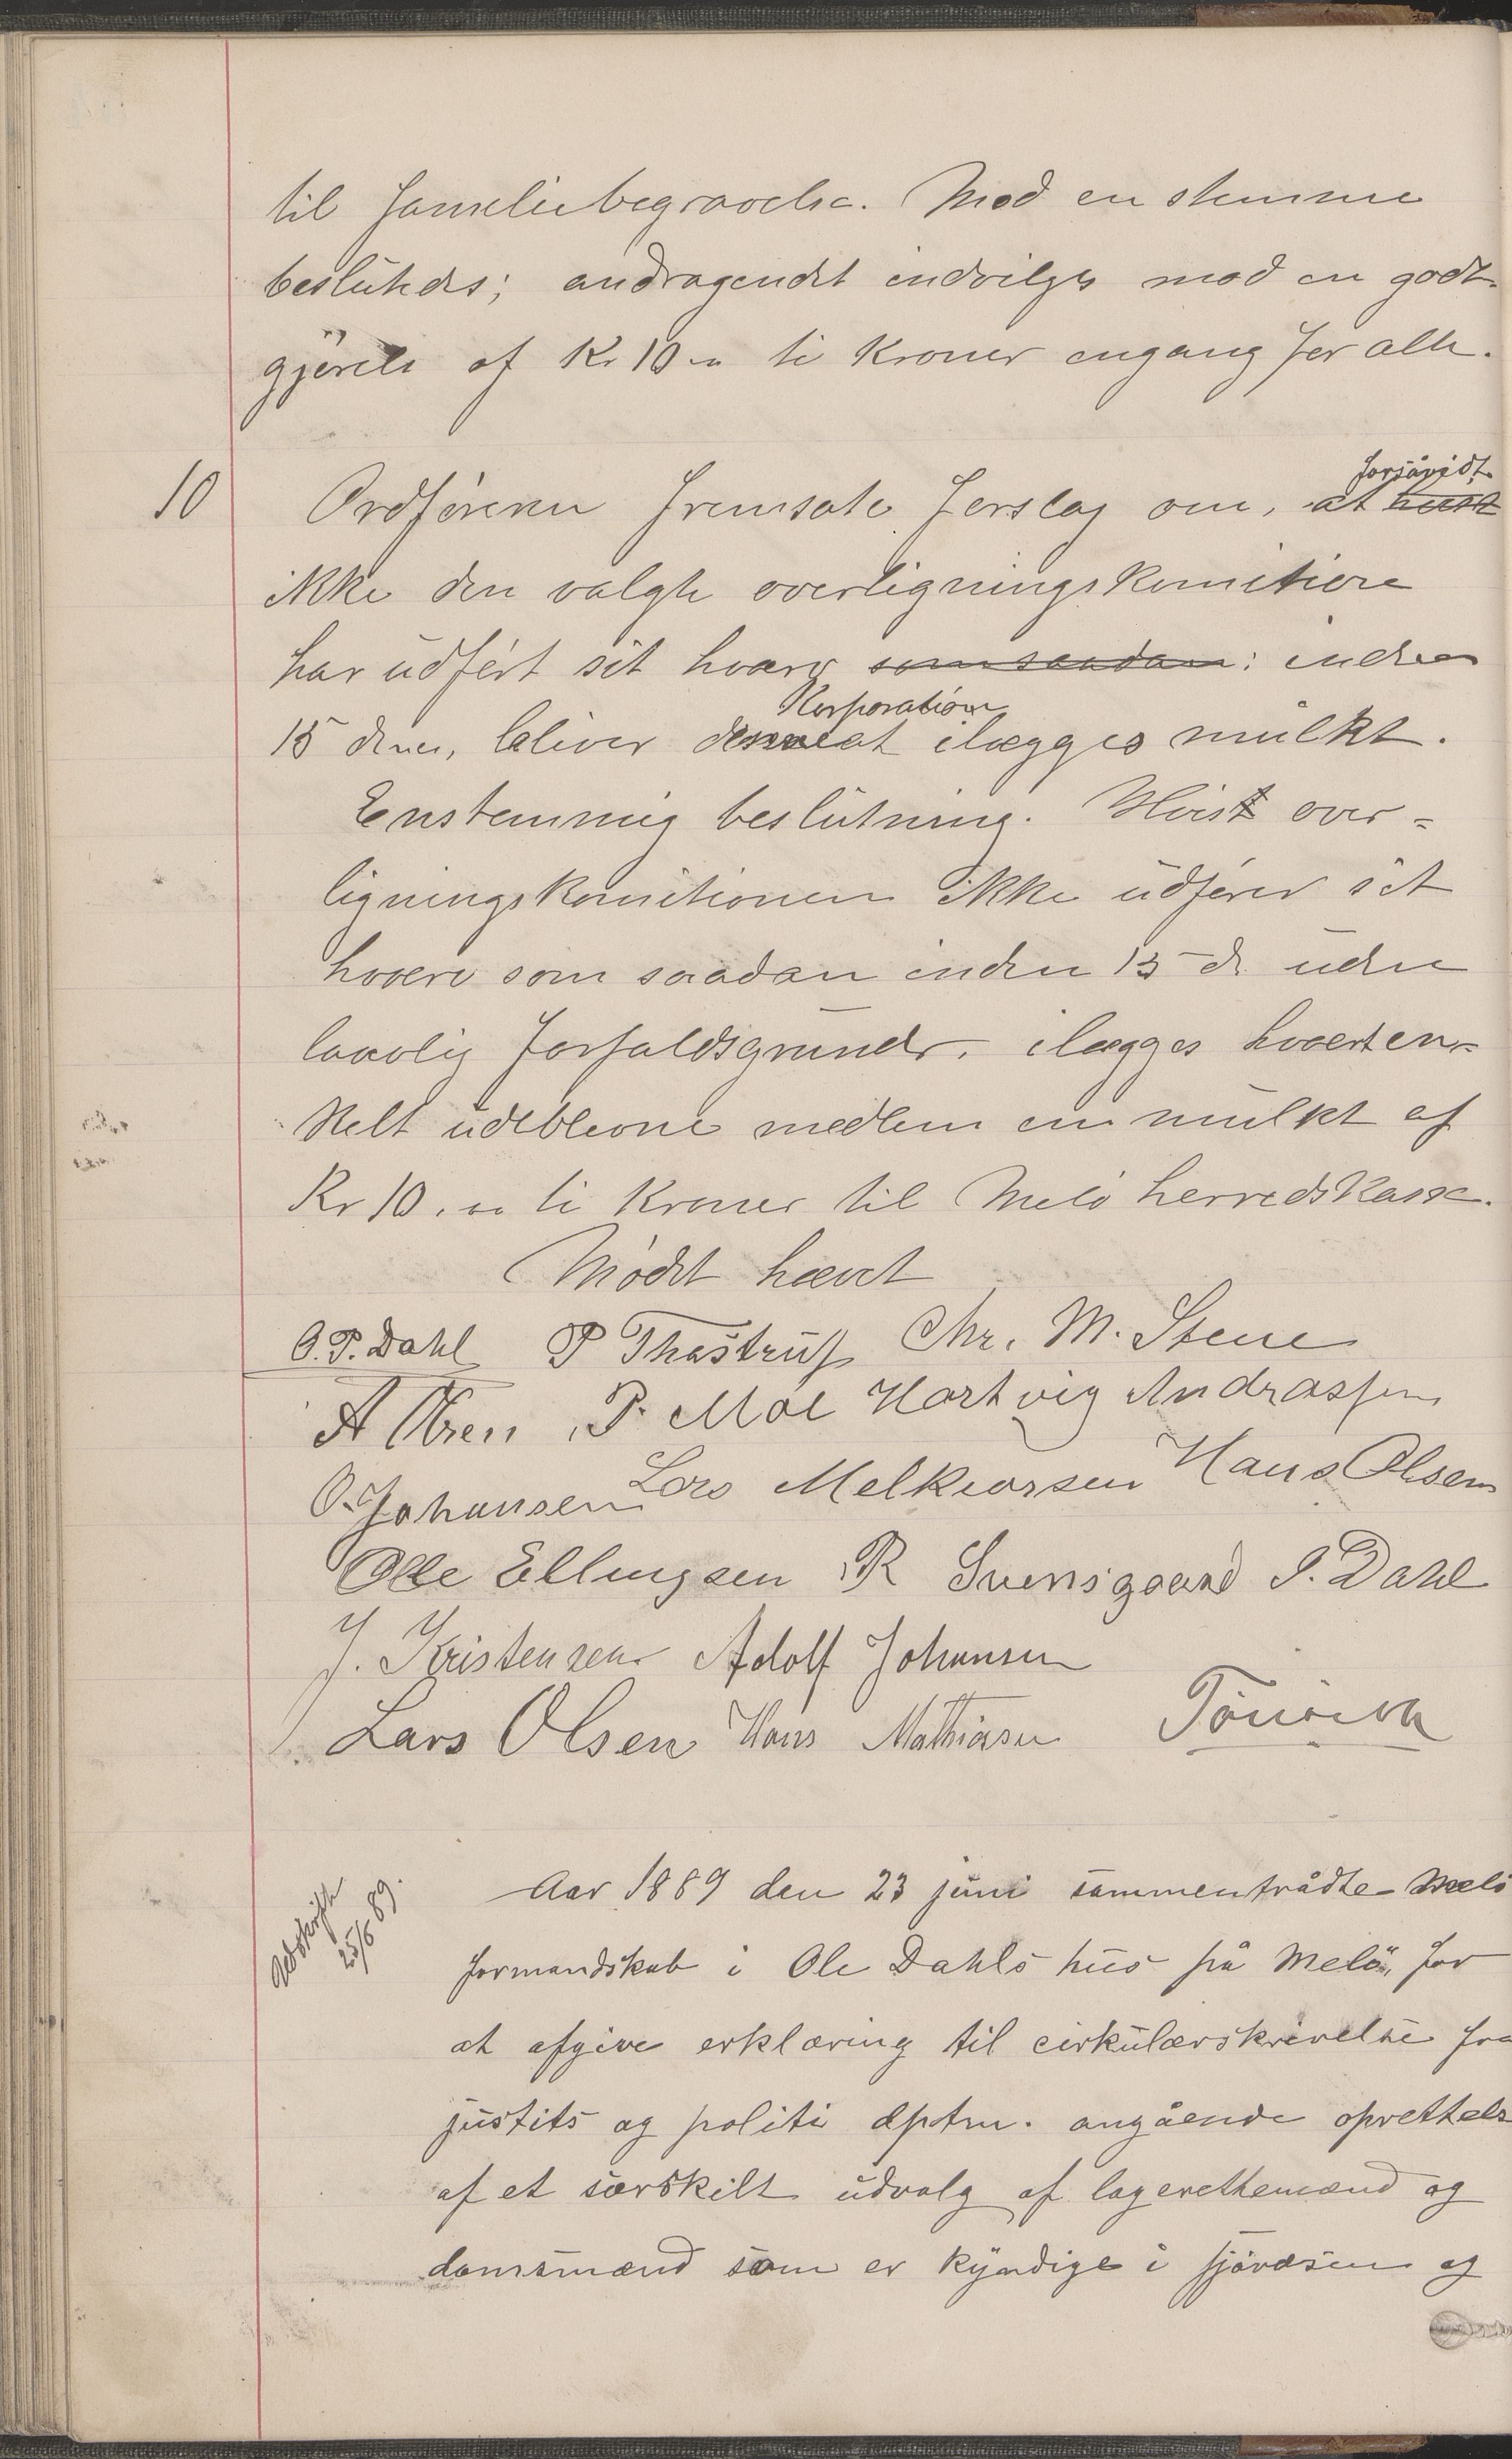 til familiebegravelse. Mod en stemme
besluttedes; andragendet indvilges mod en godt-
gjörelse af Kr 10 ti kroner engang for alle.
10
Ordföreren fremsate forslag om, at forsåvidt
ikke den valgte overligningskomitiere
har udfört sit hværv som saadan: inden
15 dener, bliver Korporation at ilægges mulkt.
Enstemmig beslutning. Hvist over-
ligningskomitionen ikke udförer sit
hværv som saadan inden 15 d. uden
lavolig forfaldsgrunde. ilægges hværten-
kelt udeblevne medlem en mulkt af
Kr 10. ti kroner til Melö herredskasse.
Mödet hævet
O. P. Dahl P Thastrup Chr. M. Stene
A Olsen P. Moe Hartvig Andrassen
O. Johansen Lars Melkiorsen Hans Olsen
Olle Ellingsen R Svensgaard J. Dahl
J. Kristensen Adolf Johansen
Lars Olsen Hans Mathiasen
Udskrift
25/6 89.
Aar 1889 den 23 juni sammentrådte Melö
formandskab i Ole Dahls hus på Melö, for
at afgive erklæring til cirkulærskrivelse fra
justits og politi dptm. angående oprettelse
af et særskilt udvalg af lagerettemænd og
domsmænd som er kyndige i sjövæsen og